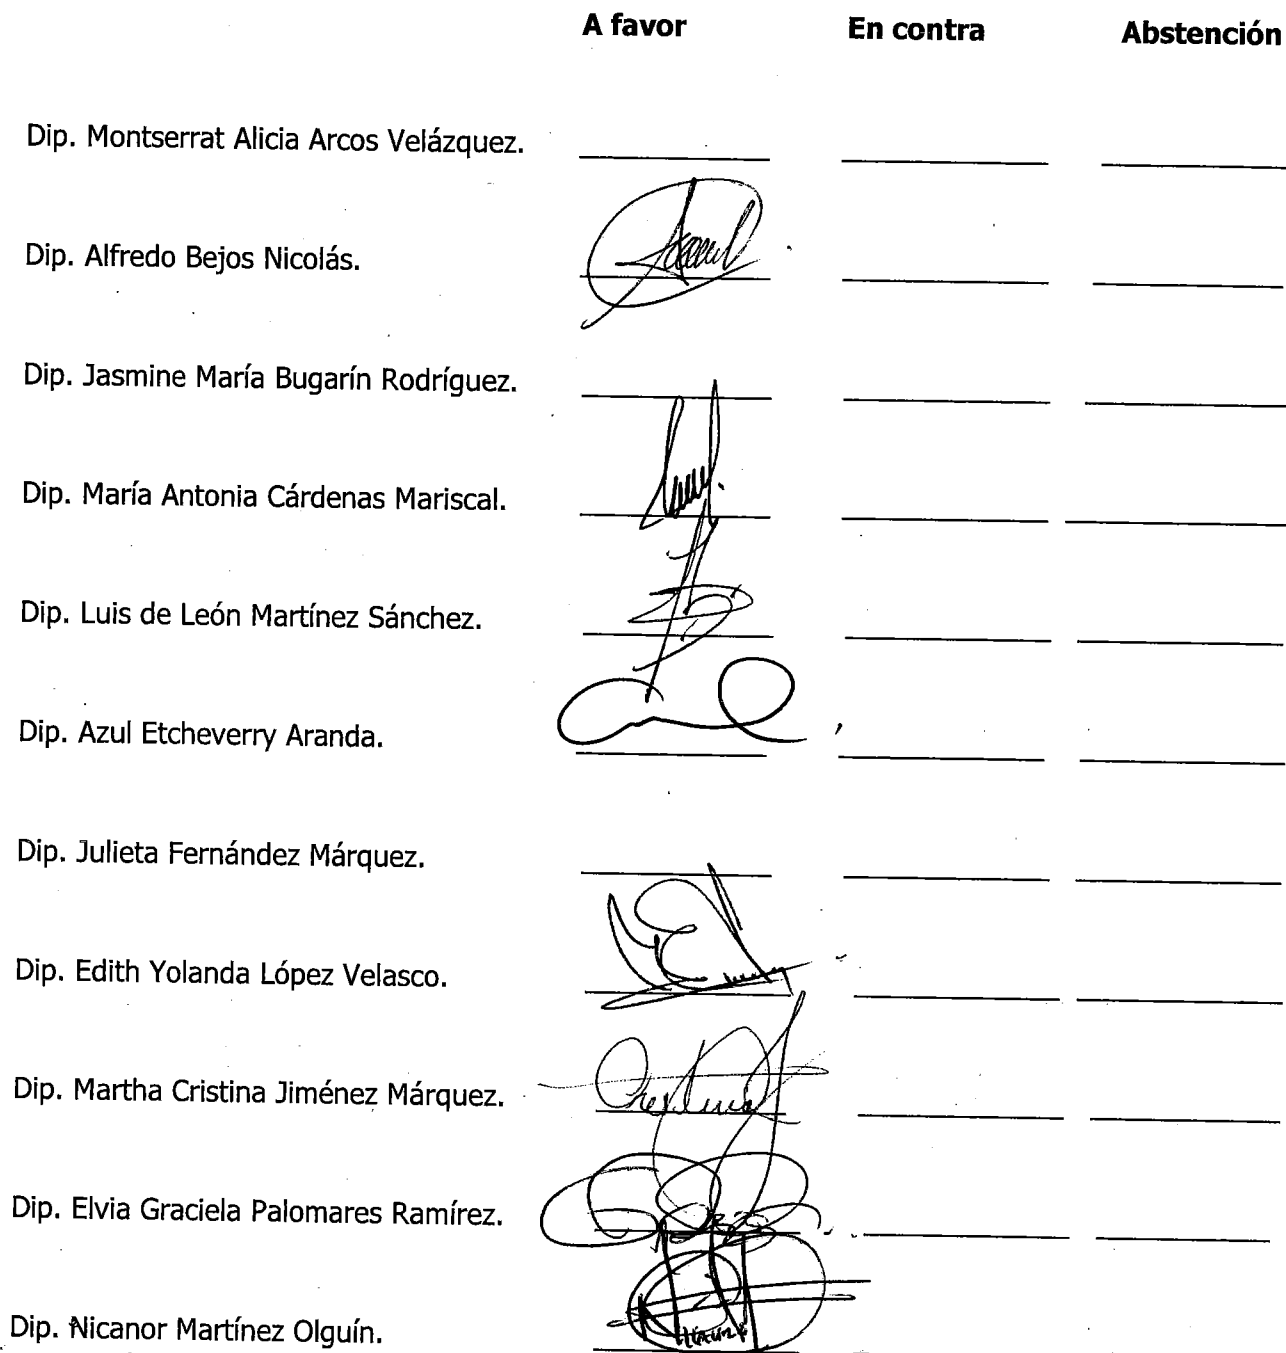 A favor En contra Abstención
Dip. Montserrat Alicia Arcos Velázquez.
Dip. Alfredo Bejos Nicolás.
Dip. Jasmine María Bugarín Rodríguez.
Dip. María Antonia Cárdenas Mariscal.
Dip. Luis de León Martínez Sánchez.
Dip. Azul Etcheverry Aranda.
Dip. Julieta Fernández Márquez.
Dip. Edith Yolanda López Velasco.
Dip. Martha Cristina Jiménez Márquez.
Dip. Elvia Graciela Palomares Ramírez.
Dip. Nicanor Martínez Olguín.